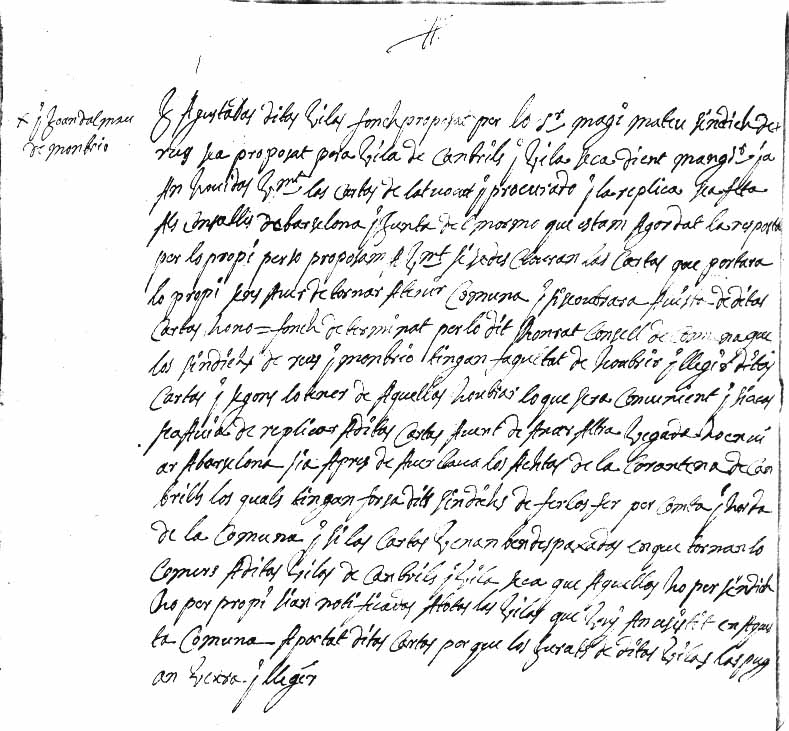 x y Joan dalmau
de monbrio
E Agustadas ditas Vilas fonch proposat per lo Sr magi mateu sindich de
rus sea proposat per a Vila de Cambrils y Vila seca dient mangs ja
An hauidas Vmt las Cartas de y procurado y la replica sea feta
Als Consallés de barselona y Junta del mormo que estam Agordat la resposta
per lo propi perso proposam A Vmt si sedes las Cartas que portara
lo propi seos Auer de tornar Atenir Comuna y si se oubrara A uista de ditas
Cartas ho no = fonch determinat per lo dit honrat Consell de Comuna que
los sindichs de rus y monbrio tingan faqultat de houbrir y llegir ditas
Cartas y segons lo tenor de Aquellas houbrar lo que sera Conuinient y si acas
sea Auia de replicar Aditas Cartas Auent de Anar Altra Vegada ho enui
ar Abarselona sia Apres de Auer los Achtas de la Corantena de Can
brils los quals tingan forsa dits sindichs de ferlos fer per Comta y
de la Comuna y si las Cartas Venan ben despaxadas en que tornan lo
Comers Aditas Vilas de Canbrils y Vila seca que Aquellas ho per sindich
ho per propi sian notificadas Atotas las Vilas que Vuy An asistit en Aques
ta Comuna Aportat ditas Cartas per que los Jurats de ditas Vilas las pug
an Veura y llegir